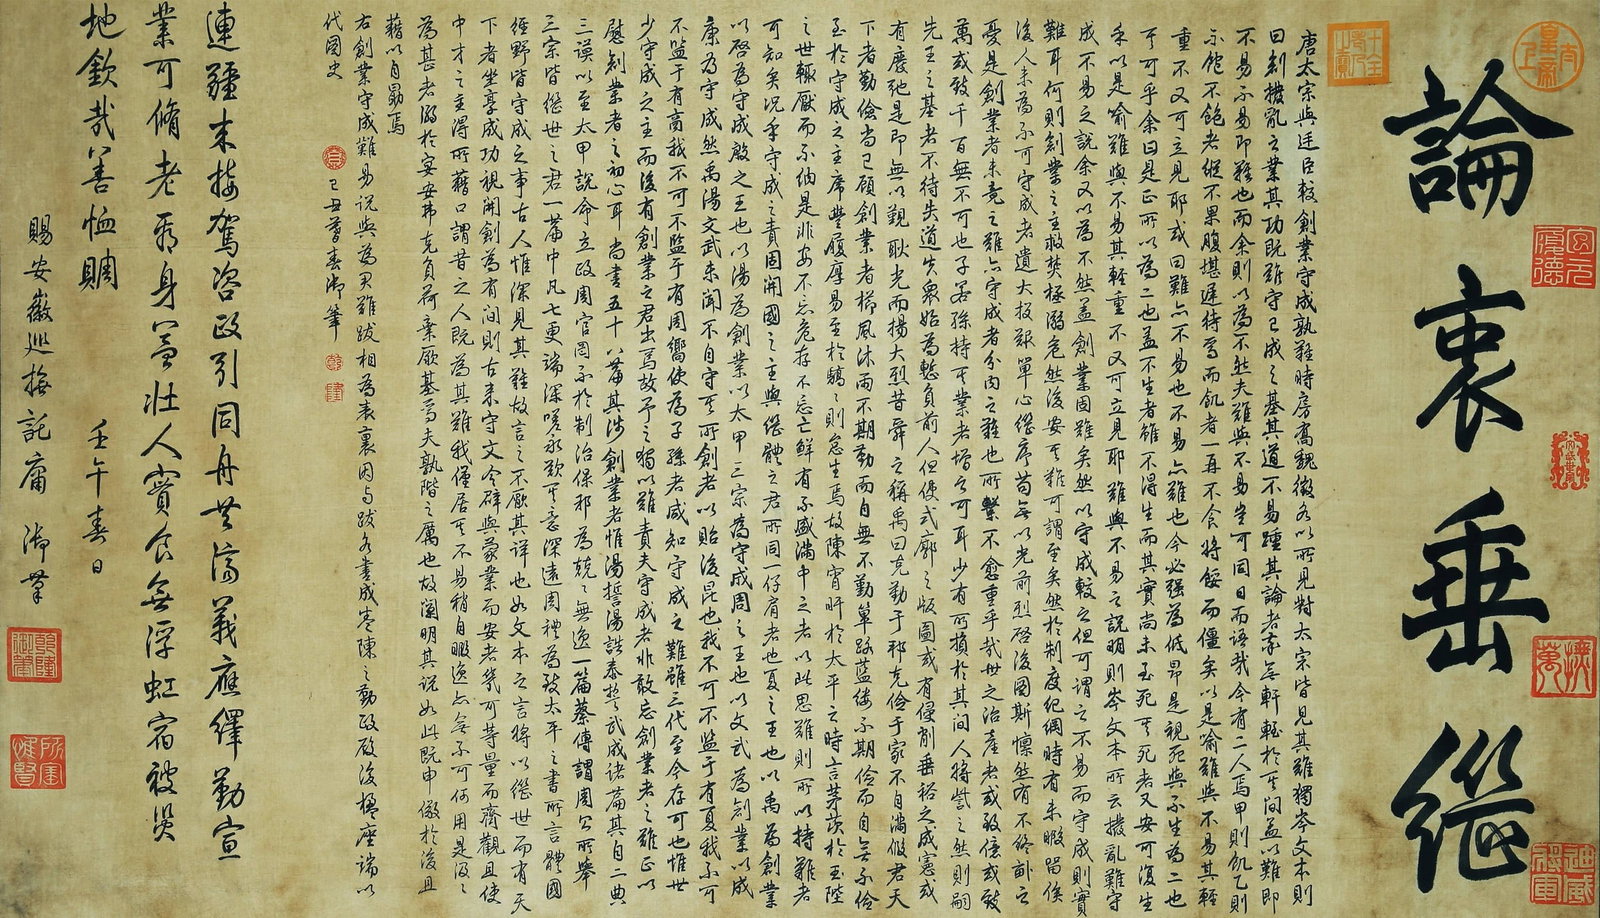 論衷垂繼
唐太宗與廷臣較創業守成孰難時房喬魏徵各以所見對太宗皆見其難獨岑文本則
曰創撥亂之業其功既難守已成之基其道不易踵其論者幾無軒輊於其間蓋以難即
不易不易即難也而余則以為不然夫難與不易豈可同日而語哉今有二人焉甲則飢乙則
不飽不飽者縱不果腹堪遲待焉而飢者一再不食將餒而僵矣以是喻難與不易其輕
重不又可立見耶或曰難亦不易也不易亦難也今必強為低昂是視死與不生為二也
可乎余曰是正所以為二也蓋不生者雖不得生而其實尚未至死其死者又安可復生
乎以是喻難與不易其輕重不又可立見耶難與不易之說明則岑文本所云撥亂難守
成不易之說余又以為不然蓋創業固難矣然以守成較之但可謂之不易而守成則實
難耳何則創業之主救焚拯溺危然後安其難可謂至矣然於制度紀綱時有未暇留俟
後人未為不可守成者遺大投艱單心繼序苟無以光前烈啓後圖斯懍然有不終之
憂是創業者未竟之難亦守成者分內之難也所繫不愈重乎哉世之治產者或致億或致
萬或致千百無不可也子若孫持其業者增之可耳少有所損於其間人將訾之然則嗣
先王之基者不待失道失衆始為慙負前人但使式廓之版圖或有侵削垂裕之成憲或
有廢弛是即無以覲耿光而揚大烈昔舜之稱禹曰克勤于邦克儉于家不自滿假君天
下者勤儉尚已顧創業者櫛風沐雨不期勤而自無不勤篳路藍縷不期儉而自無不儉
至於守成之主席豐履厚易至於驕驕則怠生焉故陳宵旰於太平之時言茅茨於玉陛
之世輒厭而不納是非安不忘危存不忘亡鮮有不盛滿中之者以此思難則所以持難者
可知矣況乎守成之責固開國之主與繼體之君所同一仔肩者也夏之王也以禹為創業
以啓為守成殷之王也以湯為創業以太甲三宗為守成周之王也以文武為創業以成
康為守成然禹湯文武未聞不自守其所創者以貽後昆也我不可不監于有夏我不可
不監于有商我不可不監于有周嚮使為子孫者咸知守成之難雖三代至今存可也惟世
少守成之主而後有創業之君出焉故予之獨以難責夫守成者非敢忘創業者之難正以
慰創業者之初心耳尚書五十八篇其涉創業者惟湯誓湯誥泰誓武成諸篇其自二典
三謨以至太甲說命立政周官罔不於制治保邦為兢兢無逸一篇蔡傳謂周公所舉
三宗皆繼世之君一篇中凡七更端深嗟永歎其意深遠周禮為致太平之書所言體國
經野皆守成之事古人惟深見其難故言之不厭其詳也如文本之言將以繼世而有天
下者坐享成功視開創為有間則古来守文令辟與蒙業而安者幾可等量而齊觀且使
中才之主得所藉口謂昔之人既為其難我僅居其不易稍自暇逸亦無不可何用是汲汲
為甚者溺於安安弗克負荷棄厥基焉夫孰階之厲也故闡明其說如此既申儆於後且
藉以自勗焉
右創業守成難易說與為君難跋相為表裏因與跋各書成卷陳之勤政殿後楹座端以
代圖史
己丑暮春御筆
連疆未接駕咨政引同舟共濟義應繹勤宣
業可脩老看身益壯人實食無浮虹宿被災
地欽哉善恤賙
壬午春日
賜安徽巡撫託庸 御筆